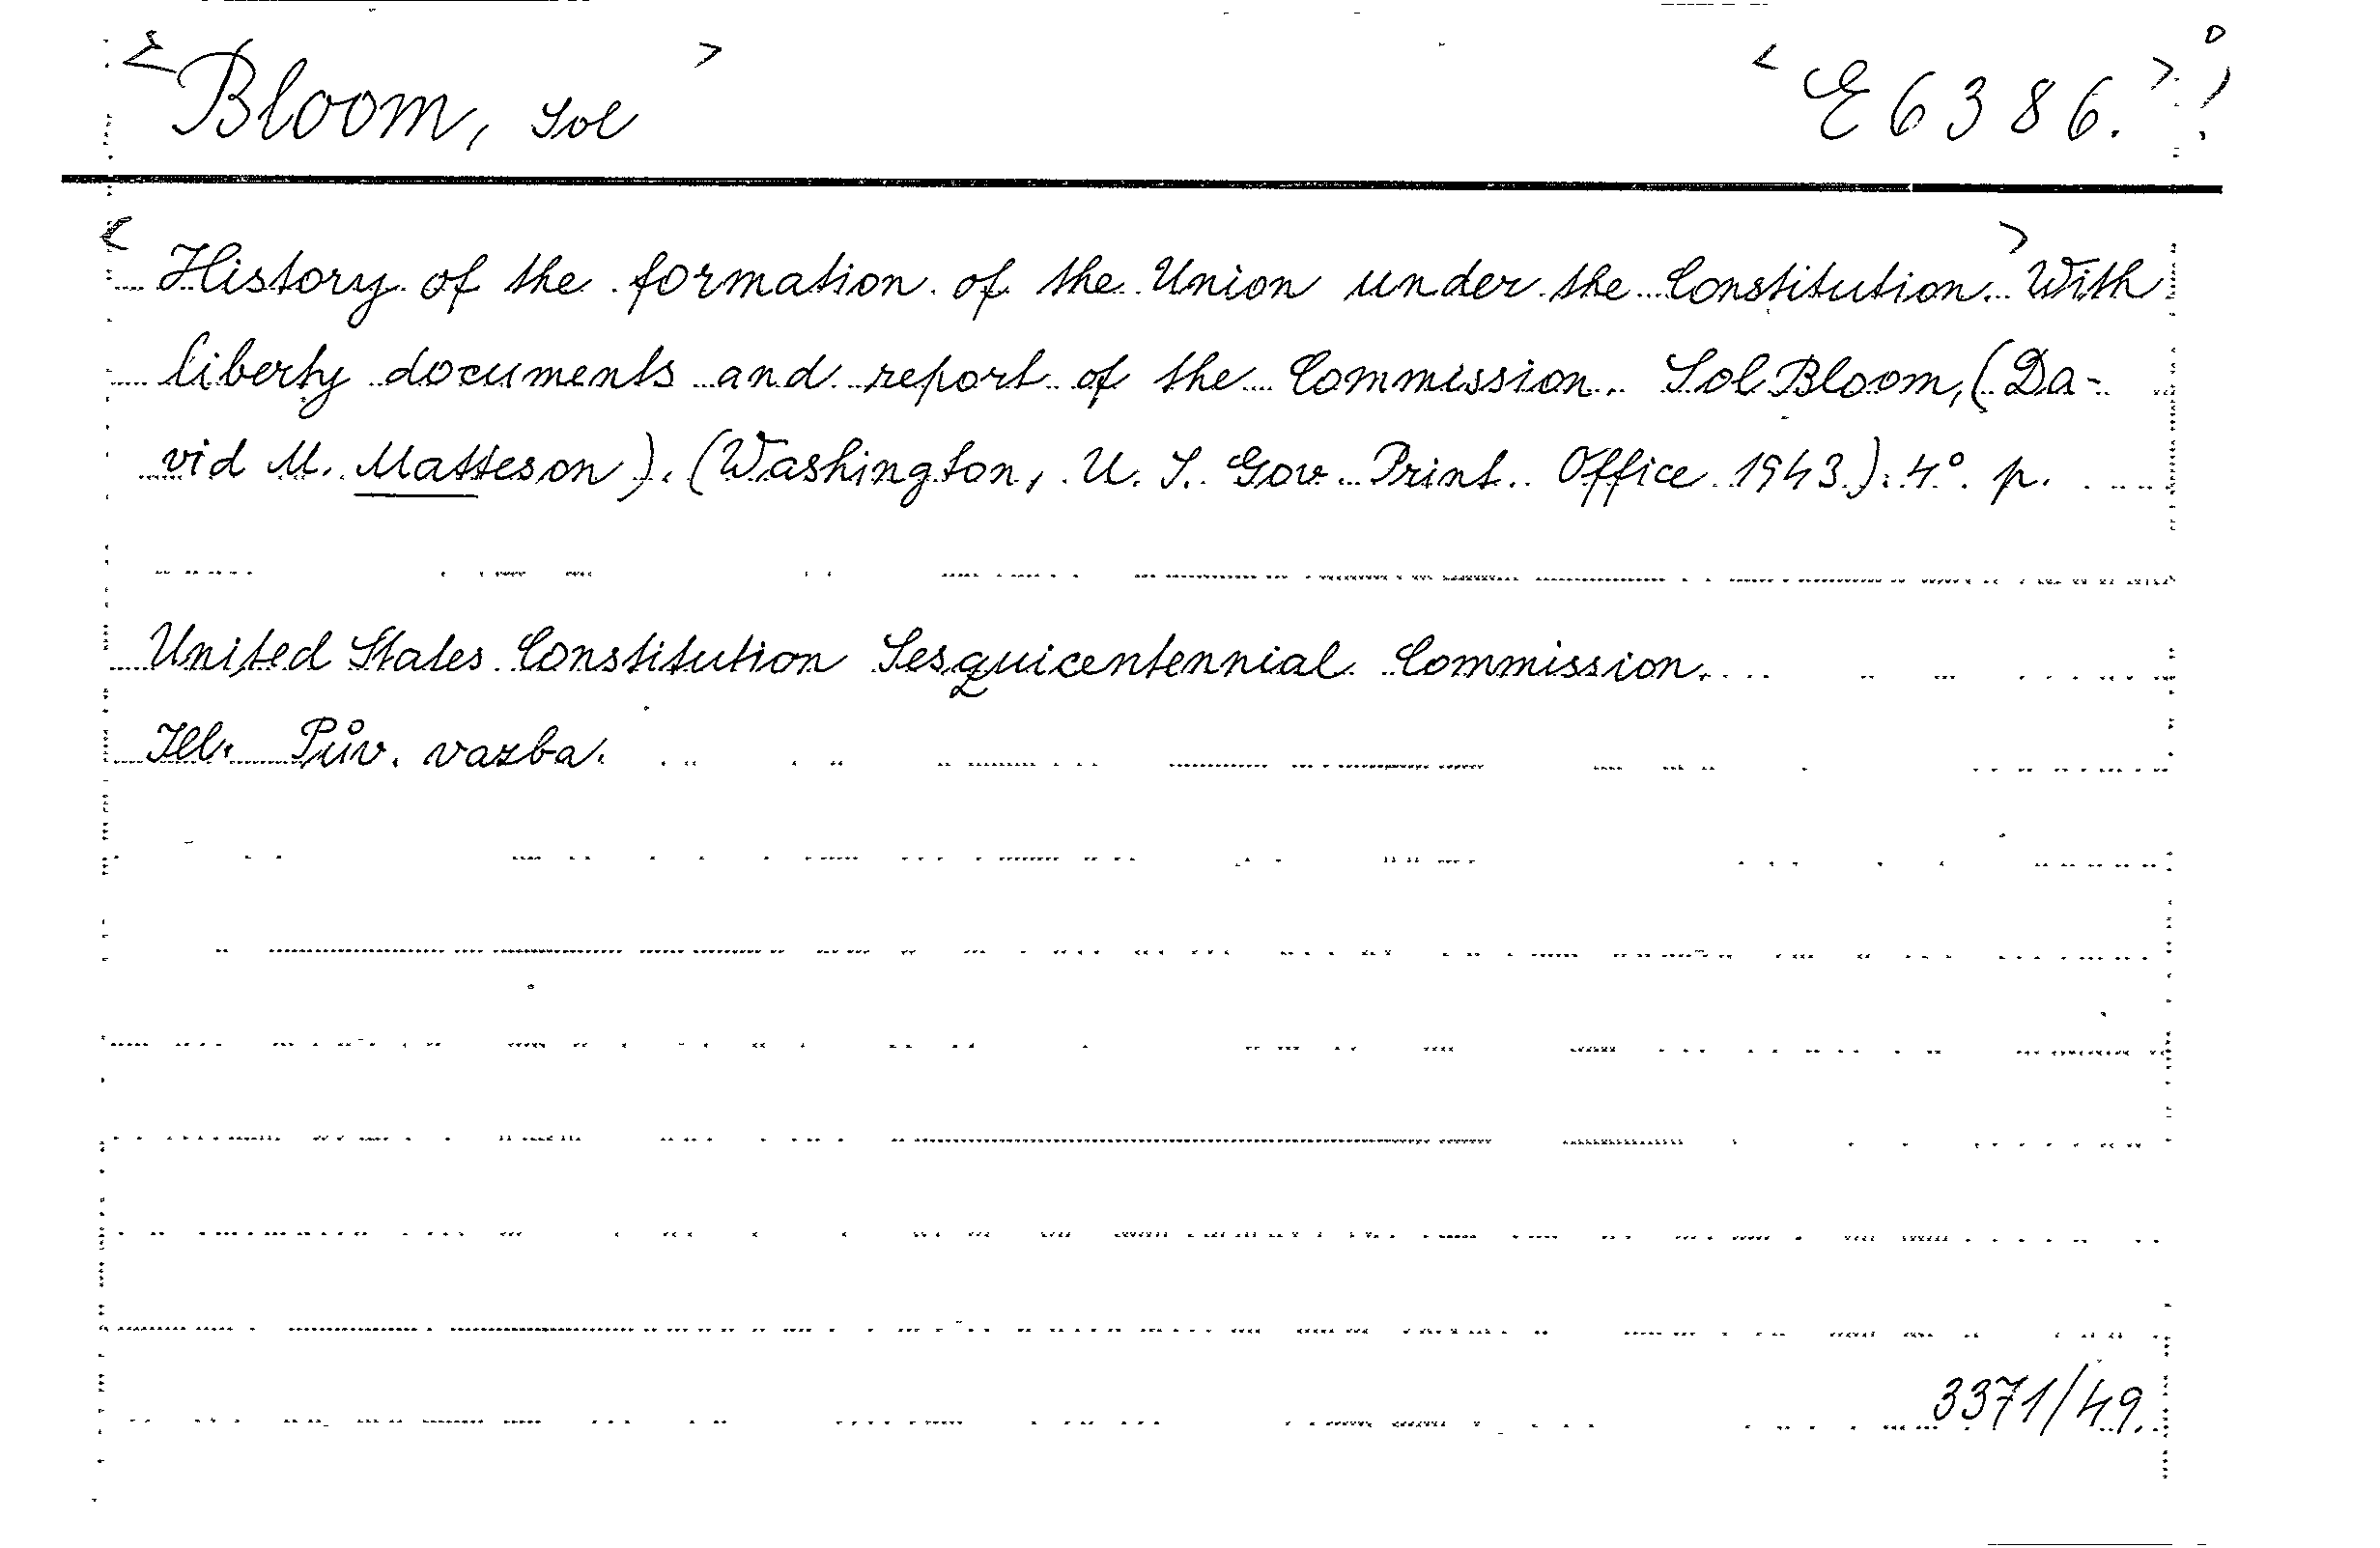 <Bloom, Sol> <E 6386.>!
<History of the formation of the Union under the Constitution.> With
liberty documents and report of the Commission. Sol Bloom, (Da-
vid M. Matteson). (Washington, U. S. Gov. Print. Office 1943). 4° p.
United States Constitution Sesquicentennial Commission.
Ill. Pův. vazba.
3371/49.